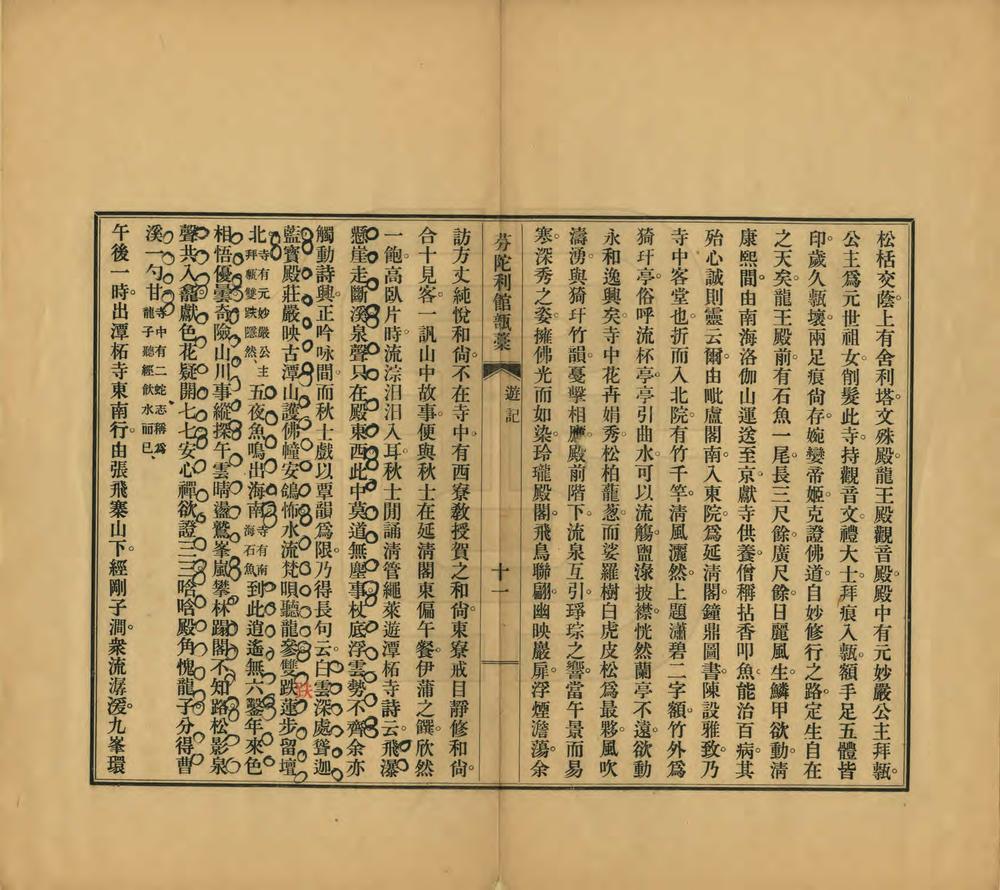 松栝交蔭。上有舍利塔文殊殿龍王殿觀音殿。殿中有元妙嚴公主拜甎。
公主爲元世祖女。削髮此寺。持觀音文。禮大士。拜痕入甎。額手足五體皆
印。歲久甎壞。兩足痕尙存。婉孌帝姬。克證佛道。自妙修行之路。定生自在
之天矣。龍王殿前。有石魚一尾。長三尺餘。廣尺餘。日麗風生。鱗甲欲動。淸
康熙間。由南海洛伽山運送至京。獻寺供養。僧稱拈香叩魚。能治百病。其
殆心誠則靈云爾。由毗盧閣南入東院。爲延淸閣。鐘鼎圖書。陳設雅致。乃
寺中客堂也。折而入北院。有竹千竿。淸風灑然。上題瀟碧二字額。竹外爲
猗玕亭。俗呼流杯亭。亭引曲水。可以流觴。盥淥披襟。恍然蘭亭不遠。欲動
永和逸興矣。寺中花卉娟秀。松柏龍蔥。而娑羅樹白虎皮松爲最夥。風吹
濤湧。與猗玕竹韻。戞擊相應。殿前階下。流泉互引。琤琮之響。當午景而易
寒。深秀之姿。擁佛光而如染。玲瓏殿閣。飛鳥聯翩。幽映巖扉。浮煙澹蕩。余
芬陀利館瓿藁
遊記
十一
訪方丈純悅和尙。不在寺中。有西寮敎授賀之和尙。東寮戒目靜修和尙。
合十見客。一訊山中故事。便與秋士在延淸閣東偏午餐。伊蒲之饌。欣然
一飽。高臥片時。流淙汨汨入耳。秋士閒誦淸管繩萊遊潭柘寺詩云。飛瀑
懸崖走斷溪。泉聲只在殿東西。此中莫道無塵事。杖底浮雲勢不齊。余亦
觸動詩興。正吟咏間。而秋士戲以覃韻爲限。乃得長句云。白雲深處聳迦
藍。寶殿莊嚴映古潭。山護佛幢安鴿怖。水流梵唄聽龍參。雙趺蓮步留壇
趺
北。寺有元妙嚴公主拜甎雙趺隱然、五夜魚鳴出海南。寺有南海石魚到此逍遙無六鑿。年來色
相悟優曇。奇險山川事縱探。午雲晴盡鷲峯嵐。攀林躡閣不知路。松影泉
聲共入龕。獻色花疑開七七。安心禪欲證三三。啥啥殿角愧龍子。分得曹
溪一勺甘。寺中有二蛇志稱爲龍子聽經飮水而已、
午後一時。出潭柘寺東南行。由張飛寨山下。經剛子澗。衆流潺湲。九峯環